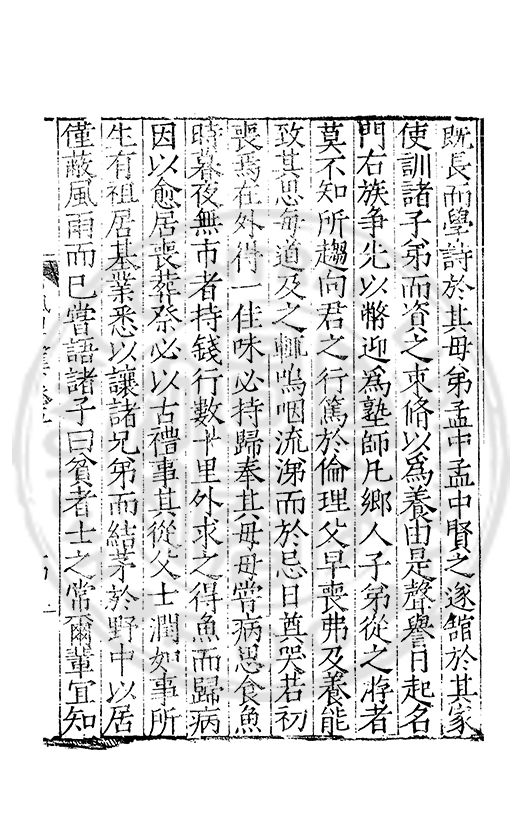 既長而學詩於其母弟孟中孟中賢之遂舘於其家
使訓諸子弟而資之束脩以爲養由是聲譽日起名
門右族争先以幣迎爲塾師凡鄉人子弟從之游者
莫不知所趨向君之行篤於倫理父早喪弗及養能
致其思每道及之輒嗚咽流涕而於忌日奠哭若初
喪焉在外得一佳味必持歸奉其母母嘗病思食魚
時暮夜無市者持錢行數十里外求之得魚而歸病
因以愈居喪葬祭必以古禮事其從父士潤如事所
生有祖居基業悉以讓諸兄弟而結茅於野中以居
僅蔽風雨而已嘗語諸子曰貧者士之常爾輩宜知